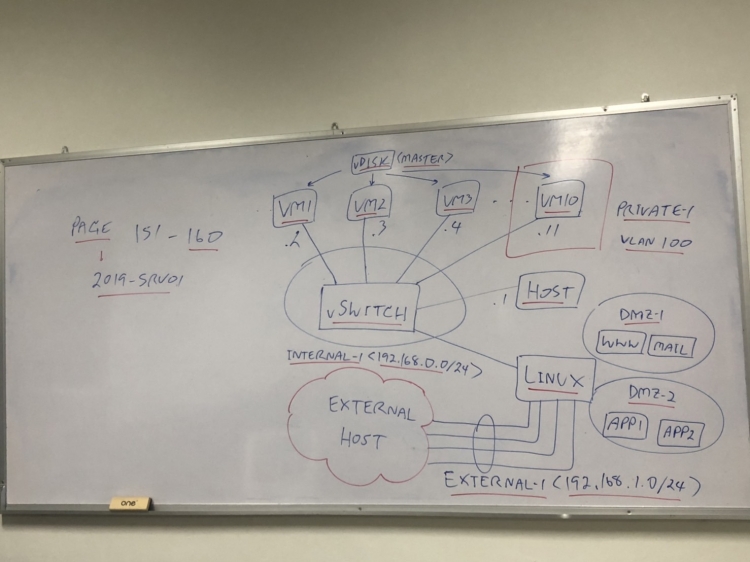 PAGE 151 - 160
2019-SRV01
vDISK (MASTER)
VM1 VM2 VM3 . . . . VM10
.2 .3 .4 .11
PRIVATE-1
VLAN 100
vSWITCH
.1 HOST
INTERNAL-1 <192.168.0.0/24>
LINUX
DMZ-1
WWW MAIL
DMZ-2
APP1 APP2
EXTERNAL
HOST
EXTERNAL-1 <192.168.1.0/24>
one